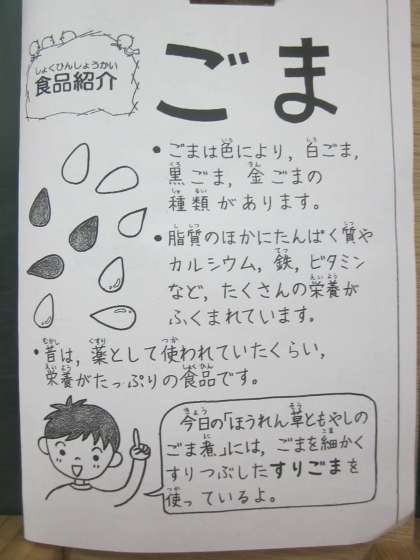 食品紹介
しょくひんしょうかい
ごま
•ごまは色により，白ごま，
黒ごま，金ごまの
種類があります。
•脂質のほかにたんぱく質や
カルシウム，鉄，ビタミン
など，たくさんの栄養が
ふくまれています。
•昔は，薬として使われていたくらい，
栄養がたっぷりの食品です。
今日の「ほうれん草ともやしの
ごま煮」には，ごまを細かく
すりつぶしたすりごまを
使っているよ。